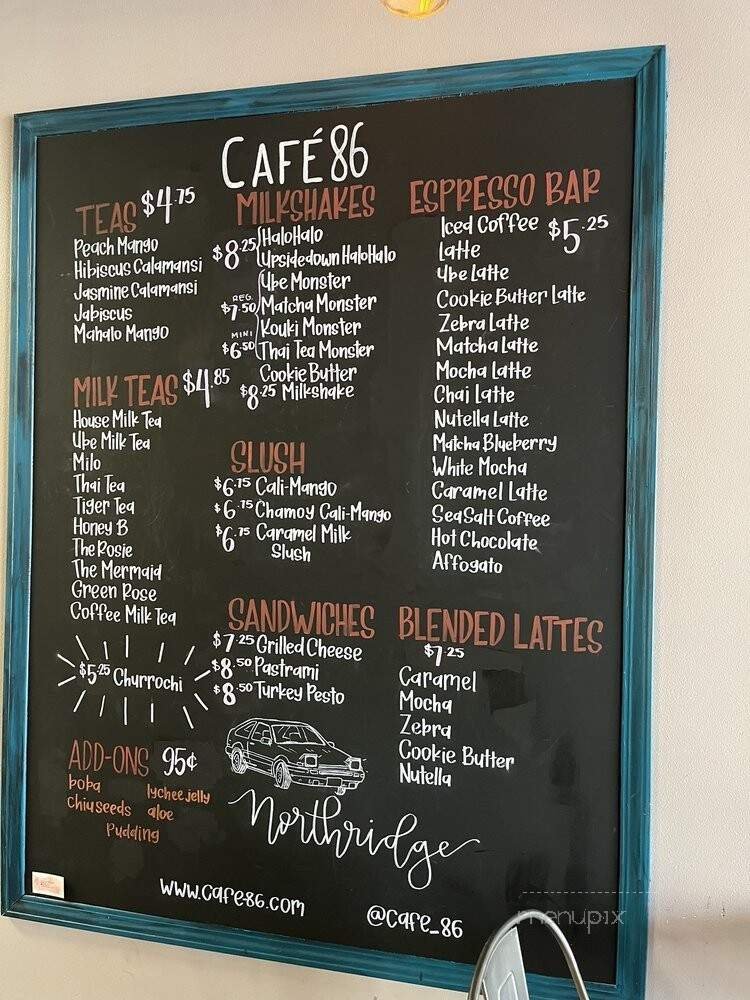 CAFÉ 86
TEAS $4.75
Peach Mango
Hibiscus Calamansi
Jasmine Calamansi
Jabiscus
Mahalo Mango
MILK TEAS $4.85
House Milk Tea
Ube Milk Tea
Milo
Thai Tea
Tiger Tea
Honey B
The Rosie
The Mermaid
Green Rose
Coffee Milk Tea
$5.25 Churrochi
ADD-ONS 95¢
boba lychee jelly
Chia seeds aloe
Pudding
MILKSHAKES
$8.25 HaloHalo
Upsidedown HaloHalo
Ube Monster
REG. $7.50 Matcha Monster
MINI Kouki Monster
$6.50 Thai Tea Monster
Cookie Butter
$8.25 Milkshake
SLUSH
$6.75 Cali-Mango
$6.75 Chamoy Cali-Mango
$6.75 Caramel Milk
Slush
SANDWICHES
$7.25 Grilled Cheese
$8.50 Pastrami
$8.50 Turkey Pesto
Northridge
ESPRESSO BAR
Iced Coffee $5.25
Latte
Ube Latte
Cookie Butter Latte
Zebra Latte
Matcha Latte
Mocha Latte
Chai Latte
Nutella Latte
Matcha Blueberry
White Mocha
Caramel Latte
SeaSalt Coffee
Hot Chocolate
Affogato
BLENDED LATTES
$7.25
Caramel
Mocha
Zebra
Cookie Butter
Nutella
www.cafe86.com
@cafe_86
menupix